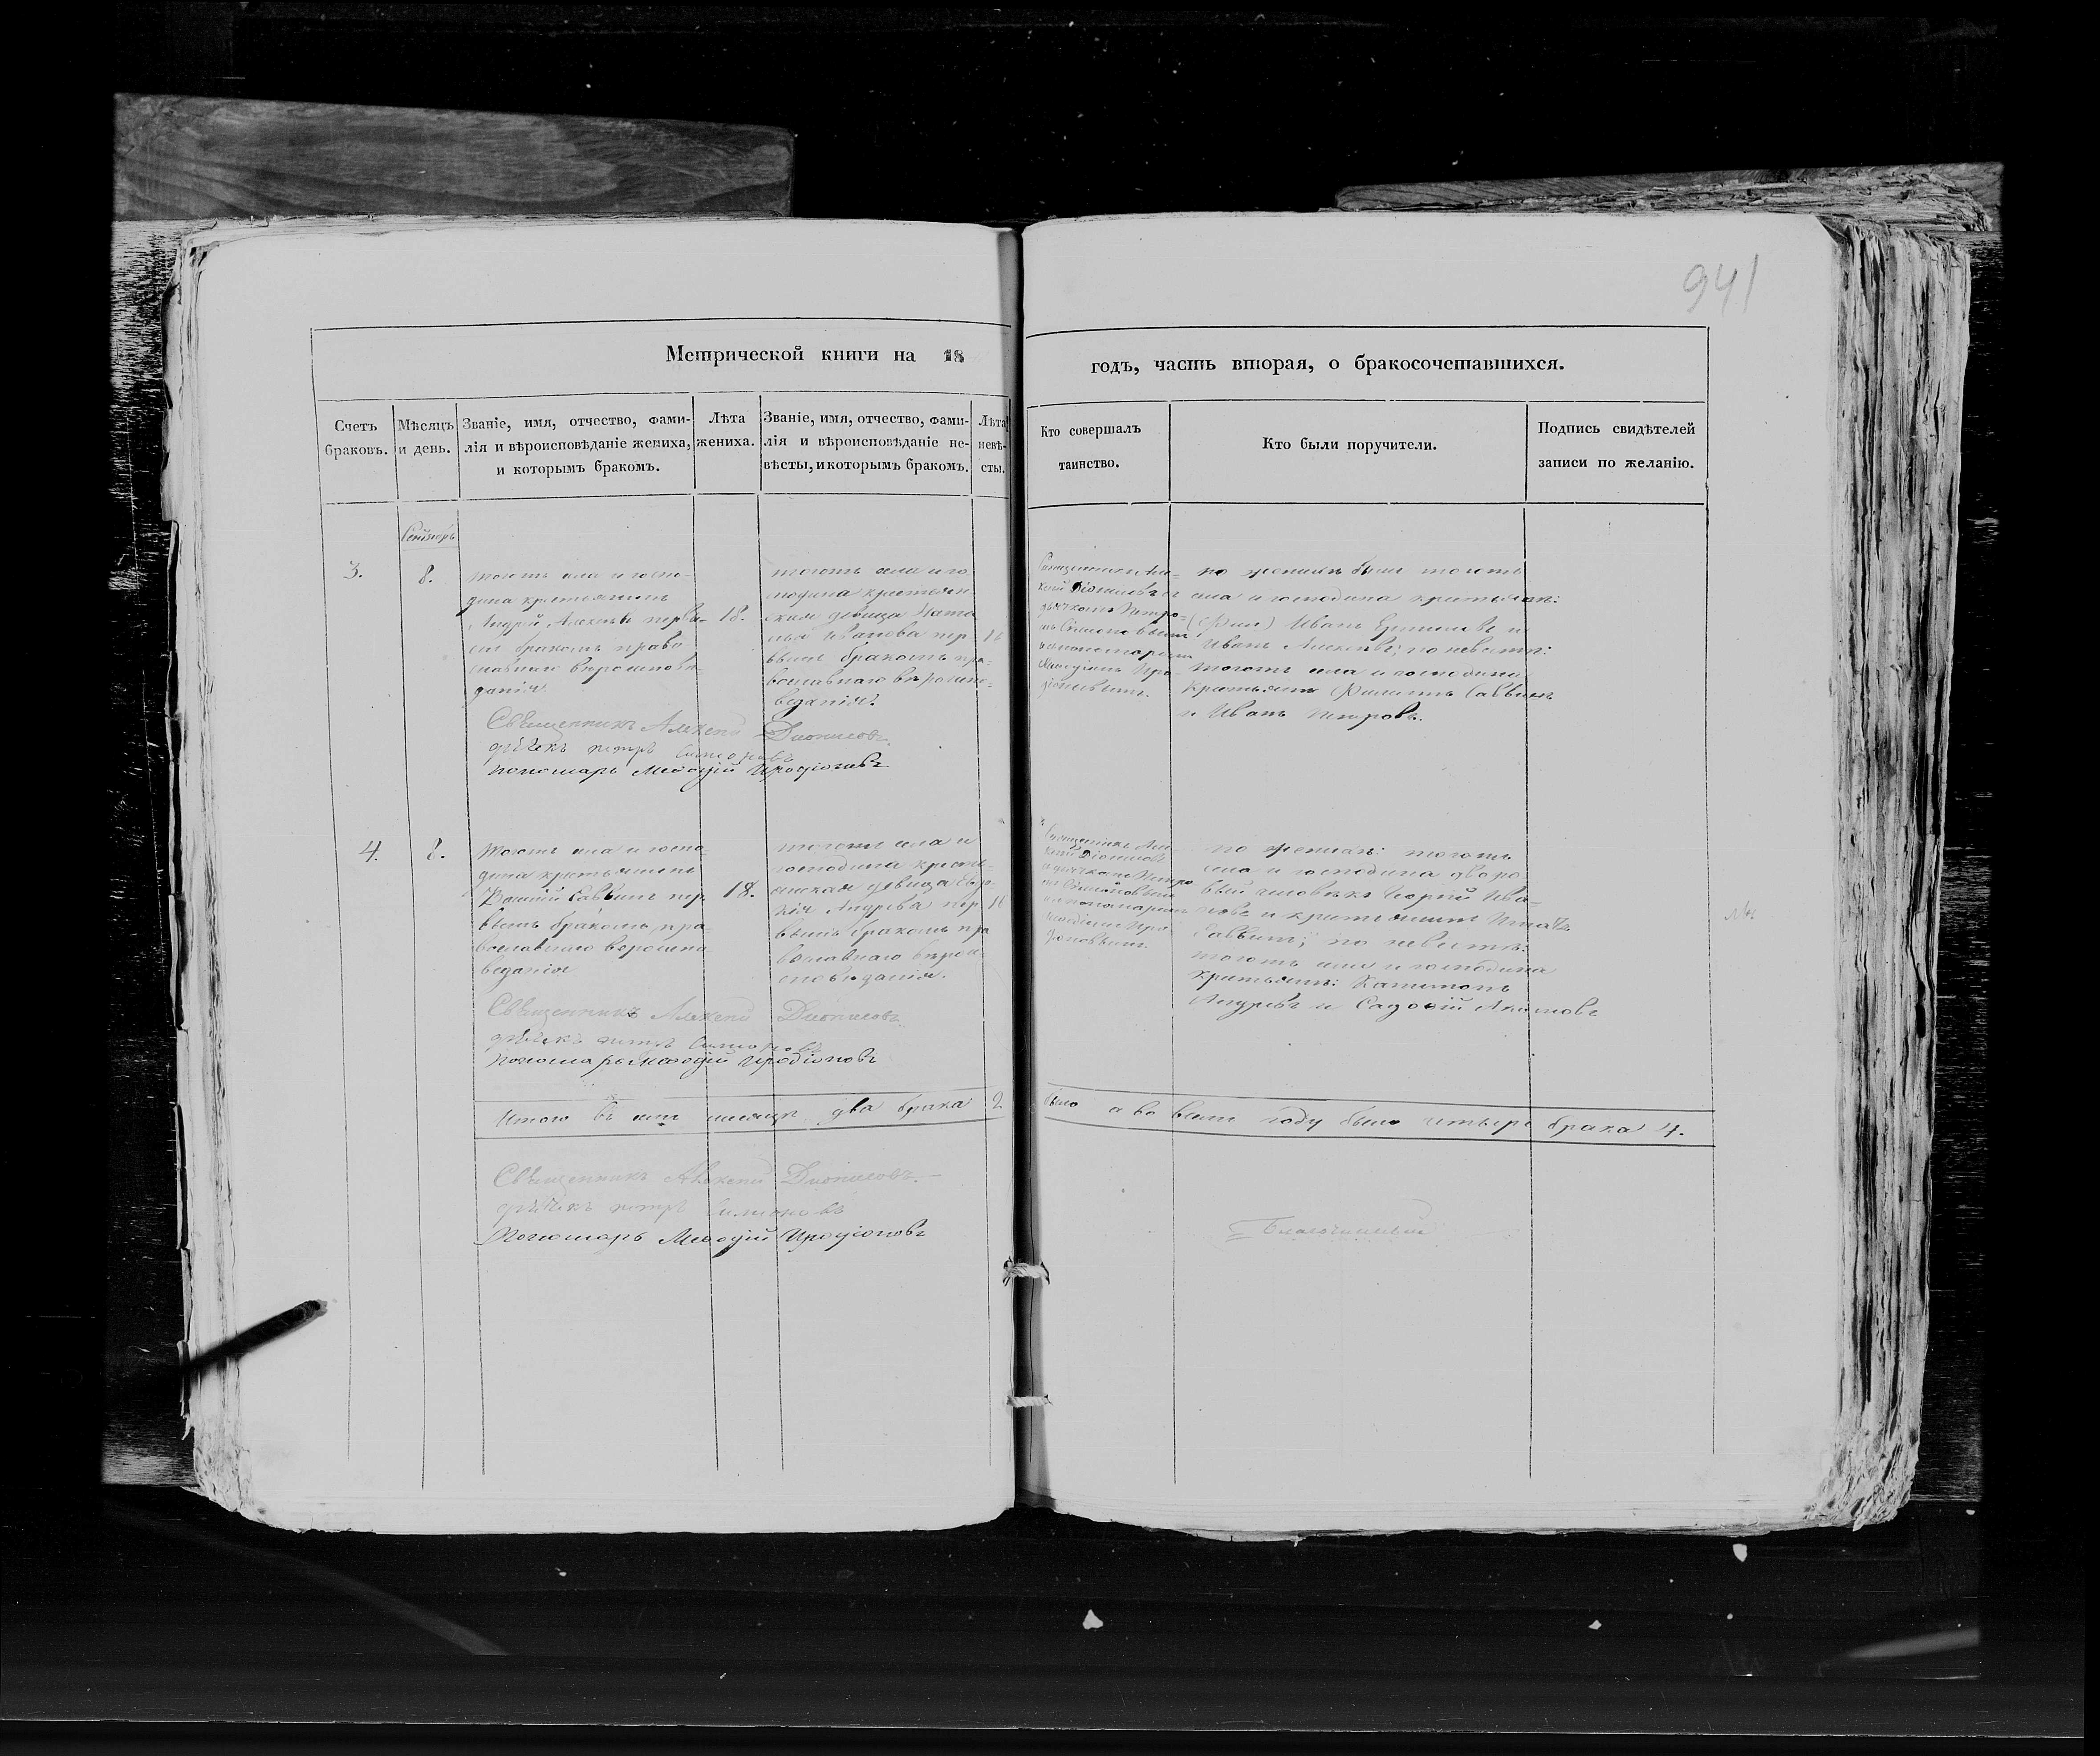 941
Метрической книги на 18
годъ, часть вторая, о бракосочетавшихся.
Счетъ браковъ.
Мѣсяцъ и день.
Званіе, имя, отчество, фами-
лія и вѣроисповѣданіе жениха,
и которымъ бракомъ.
Лѣта
жениха.
Званіе, имя, отчество, фами-
лія и вѣроисповѣданіе не-
вѣсты, и которымъ бракомъ.
Лѣта
невѣ-
сты.
Кто совершалъ
таинство.
Кто были поручители.
Подпись свидѣтелей
записи по желанію.
3.
8.
тогожъ села и госпо-
дина крестьянинъ
Андрей Алексѣевъ первы-
мъ бракомъ право-
славнаго вѣроисповѣ-
данія
18.
тогожъ села и го
сподина крестьян
ская девица Ната
лья Иванова пер
вымъ бракомъ пра-
вославнаго вѣроиспо-
веданія.
16
Священникъ Але-
ксѣй Діонисовъ съ
дьячкомъ Петро-
мъ Симоновымъ
и пономаремъ
Меѳодіемъ Иро-
діоновымъ.
по женихѣ были тогожъ
села и господина крестьяне:
Иванъ Ермиловъ и
Иванъ Алексѣевъ; по невѣстѣ:
тогожъ села и господина
крестьяне Филиппъ Саввинъ
и Иванъ Петровъ.
Священникъ Алексей Дионисовъ
дьячекъ петръ Симоновъ
пономарь Меѳодій Иродіоновъ
4.
8.
Тогожъ села и госпо-
дина крестьянинъ
Саввинъ пер
вымъ бракомъ пра
вославнаго вероиспо
веданія
18.
тогожъ села и
господина кресть-
янская девица
Андреева пер
вымъ бракомъ пра
вославнаго вѣрои
споведанія.
16
Священникъ Але-
ксѣй Діонисовъ
съ дьячкомъ Петро
мъ Симоновымъ
и пономаремъ
Меѳодіемъ Иро
діоновымъ.
по женихѣ: тогожъ
села и господина дворо
вый человѣкъ Георгій Ива-
новъ и крестьянинъ Игнатъ
Саввинъ; по невѣстѣ:
тогожъ села и господина
крестьяне: Капитонъ
Андреевъ и Садокій Акимовъ
Священникъ Алексей Дионисовъ
дьячекъ петръ Симоновъ
Пономарь Меѳодій Иродіоновъ
Итого въ семъ месяцѣ два брака 2
было а во всемъ году было четыре брака 4.
Священникъ Алексей Дионисовъ.
дьячекъ петръ Симоновъ
Пономарь Меѳодій Иродіоновъ
Благочинный